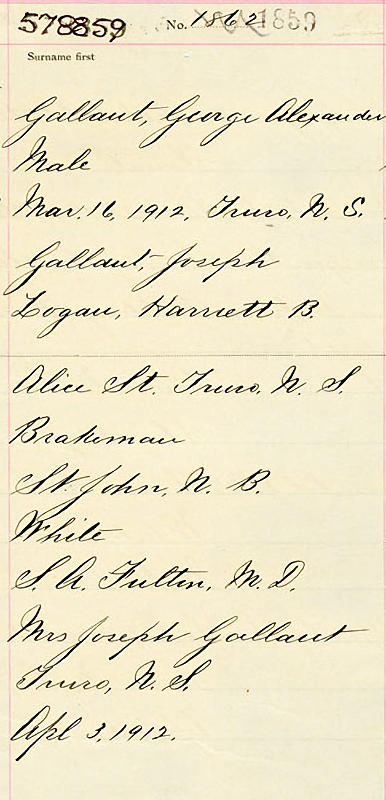 578859
No. 1862
Surname first
Gallant, George Alexander
Male
Mar. 16, 1912, Truro, N. S.
Gallant, Joseph
Logan, Harriett B.
Alice St. Truro, N. S.
Brakeman
St. John, N. B.
White
S. A. Fulton, M. D.
Mrs Joseph Gallant
Truro, N. S.
Apl 3, 1912.